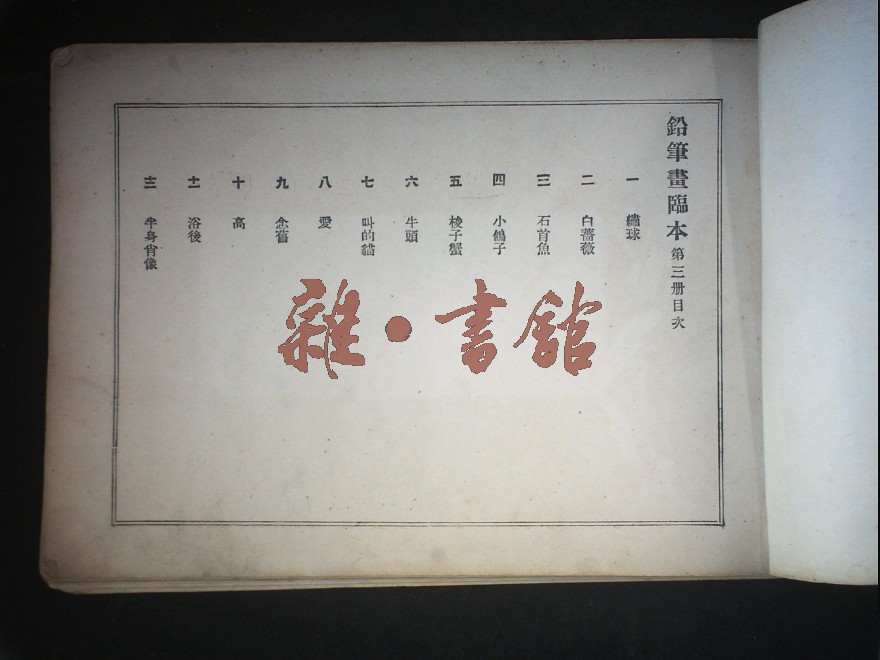 鉛筆畫臨本 第三册目次
一 繡球
二 白薔薇
三 石首魚
四 小鴿子
五 梭子蟹
六 牛頭
七 叫的貓
八 愛
九 念舊
十 高
十一 浴後
十二 半身肖像
雜·書館